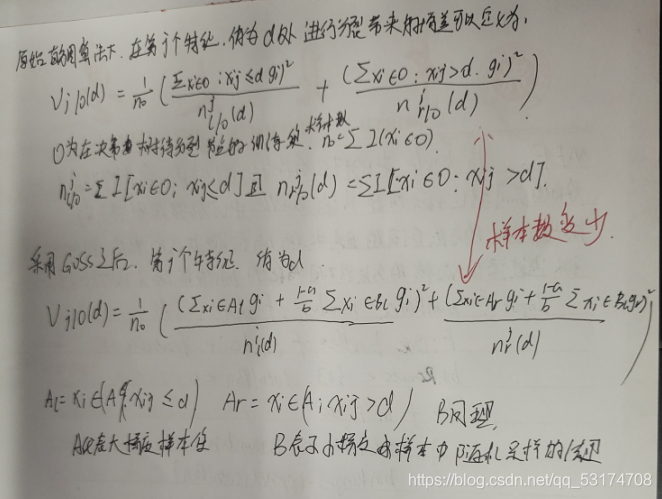 原始的用算法下. 在第j个特征, 值为d处 进行分裂带来的增益可以定义为:
V_{j|O}(d) = \frac{1}{n_O} ( \frac{(Σ_{xi∈O: xij≤d} gi)^2}{n^j_{l|O}(d)} + \frac{(Σ_{xi∈O: xij>d} gi)^2}{n^j_{r|O}(d)} )
O为在决策树待分裂节点的训练集. 样本数 n_O = Σ I(xi∈O).
n^j_{l|O} = Σ I[xi∈O; xij≤d] 且 n^j_{r|O}(d) = Σ I[xi∈O: xij >d].
样本数变少.
采用GOSS之后. 第j个特征. 值为d.
V_{j|O}(d) = \frac{1}{n_O} ( \frac{(Σ_{xi∈Al} gi + \frac{1-a}{b} Σ_{xi∈Bl} gi)^2}{n^j_l(d)} + \frac{(Σ_{xi∈Ar} gi + \frac{1-a}{b} Σ_{xi∈Br} gi)^2}{n^j_r(d)} )
Al = xi∈(A; xij ≤d) Ar = xi∈(A; xij >d) B同理.
大梯度样本 B表示小梯度的样本中随机采样的结果
https://blog.csdn.net/qq_53174708